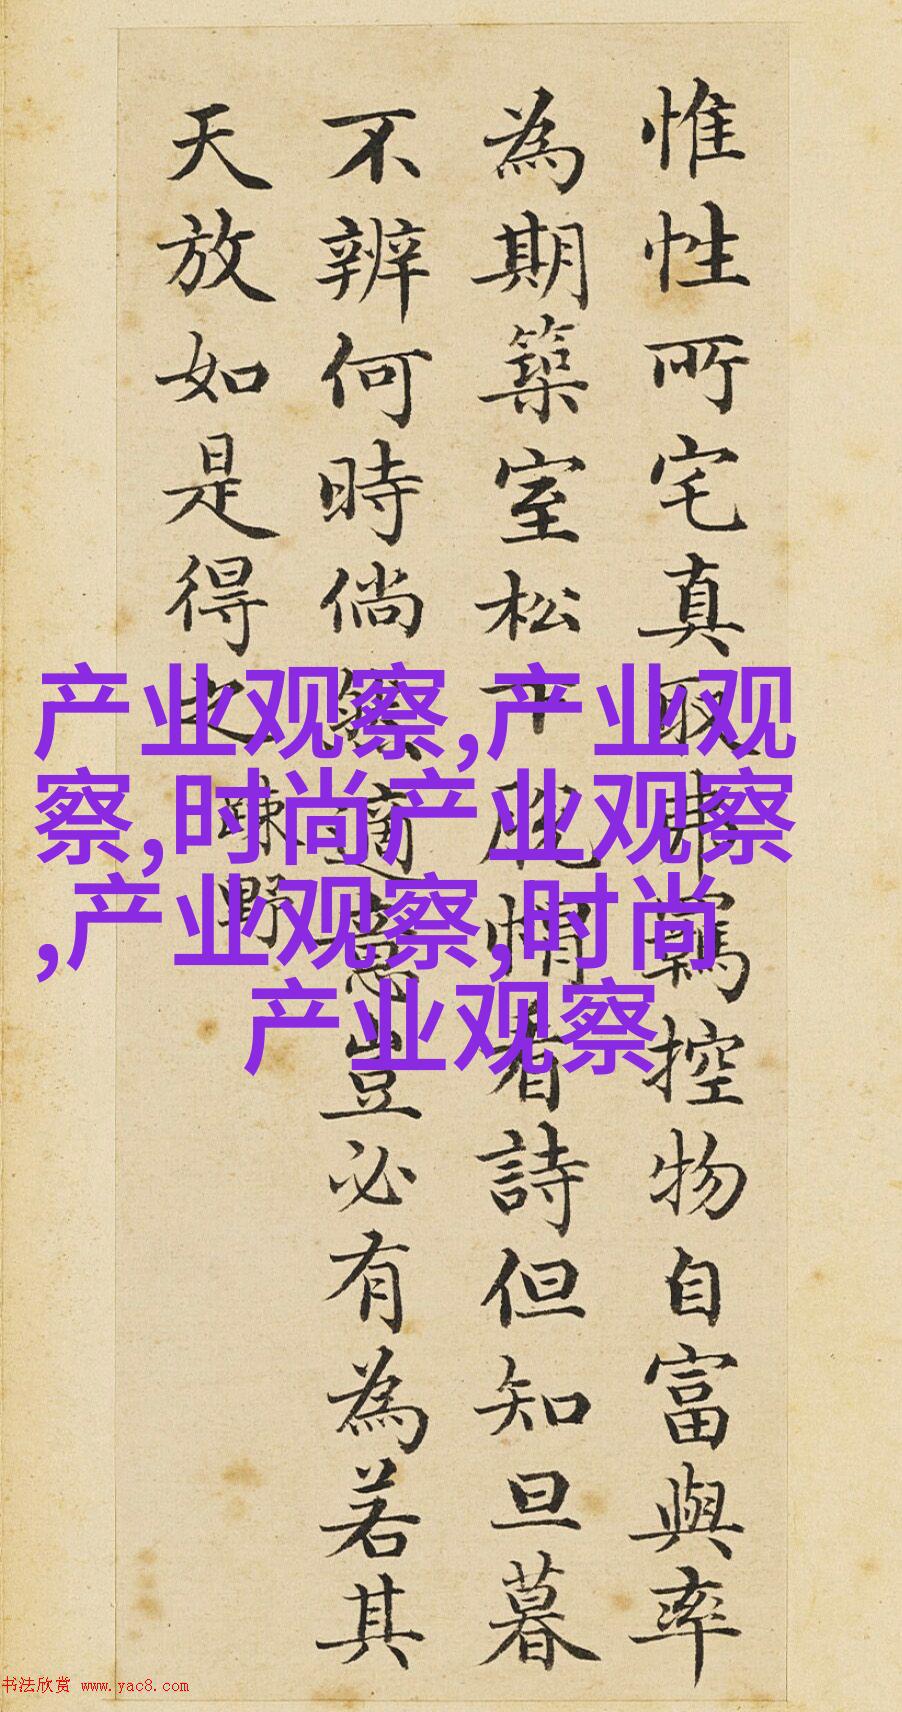 惟性所宅真取弗羈控物自富與率
為期築室松下脱帽看詩但知旦暮
不辨何時倘然適意豈必有為若其
天放如是得之
疎野
产业观察,产业观
察,时尚产业观察
,产业观察,时尚
产业观察
书法欣赏 www.yac8.com